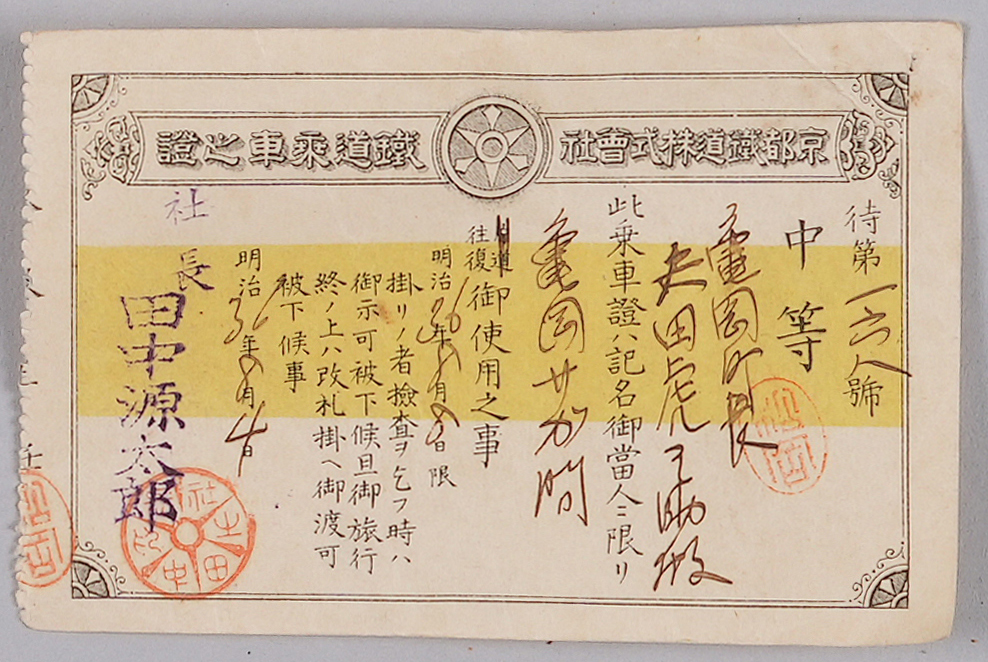 京都鐵道株式會社
鐵道乘車之證
待第一六八號
中等
亀岡町長
田虎之助殿
此乗車證ハ記名御當人ニ限リ
亀岡 間
往復御使用之事
明治36年 月 日限
掛リノ者撿査ヲ乞フ時ハ
御示可被下候旦御旅行
終ノ上ハ改札掛ヘ御渡可
被下候事
明治36年 月 日
社長
田中源太郎